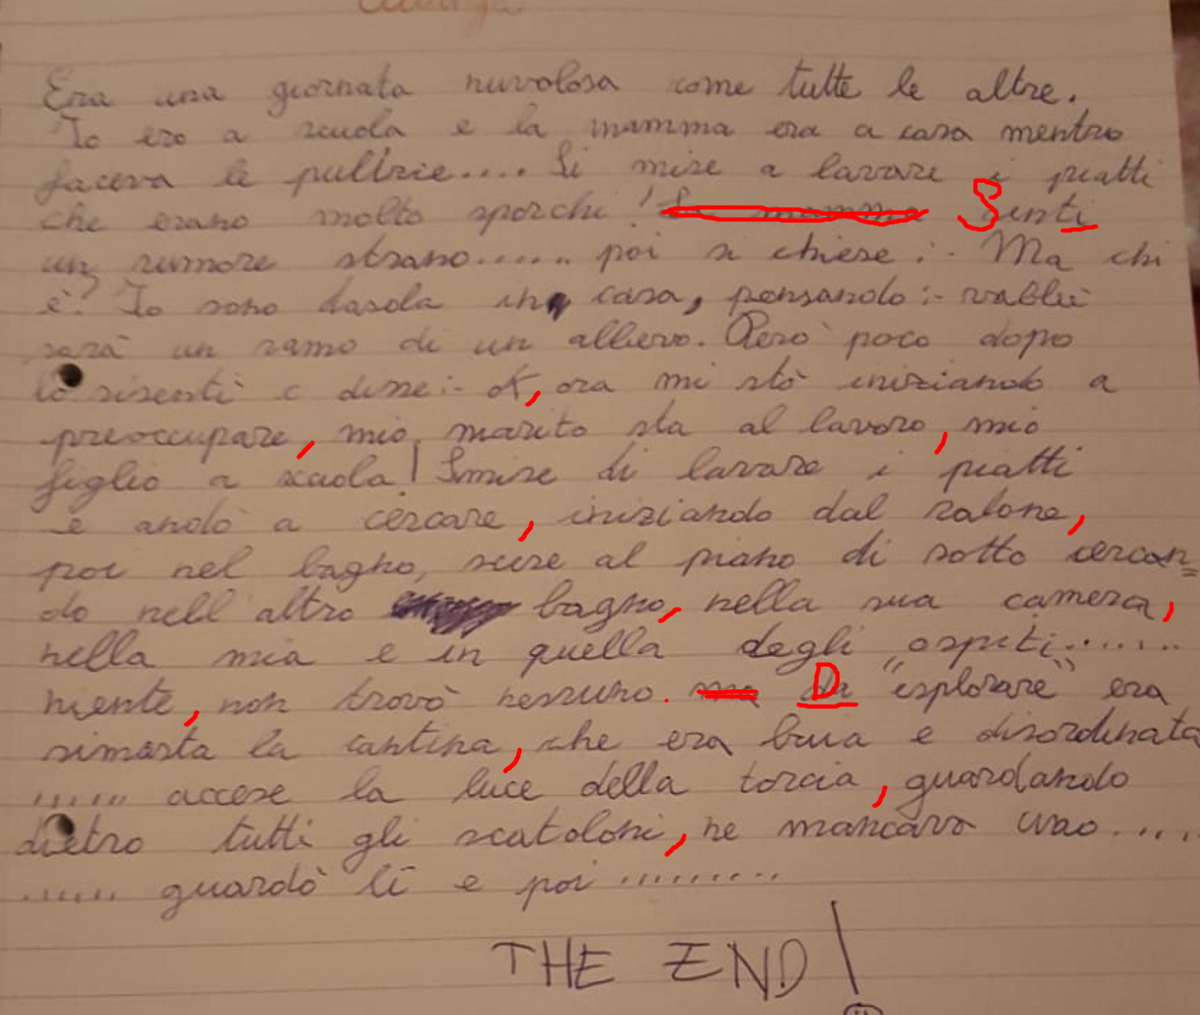 Era una giornata nuvolosa come tutte le altre.
Io ero a scuola e la mamma era a casa mentre
faceva le pulizie.... Si mise a lavare i piatti
che erano molto sporchi! La mamma Sentì
un rumore strano...... poi si chiese:- Ma chi
è? Io sono dasola in casa, pensando:- vabbè
sarà un ramo di un albero. Però poco dopo
lo risentì e disse:- ok, ora mi stò iniziando a
preoccupare, mio marito sta al lavoro, mio
figlio a scuola! Smise di lavare i piatti
e andò a cercare, iniziando dal salone,
poi nel bagno, scese al piano di sotto cercan=
do nell'altro bagno, nella sua camera,
nella mia e in quella degli ospiti.......
niente, non trovò nessuno. ma Da "esplorare" era
rimasta la cantina, che era buia e disordinata
...... accese la luce della torcia, guardando
dietro tutti gli scatoloni, ne mancava uno....
...... guardò lì e poi .........
THE END!